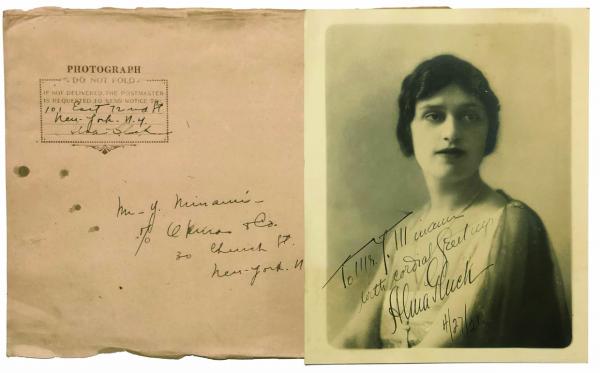 PHOTOGRAPH
DO NOT FOLD
IF NOT DELIVERED, THE POSTMASTER
IS REQUESTED TO SEND NOTICE TO
101 East 72nd St
New-York. N.Y.
Alma Gluck
Mr Y. Minami
c/o & Co.
30 Church St.
New-York. N
To Mr. Y. Minami
with cordial Greetings
Alma Gluck
4/27/21